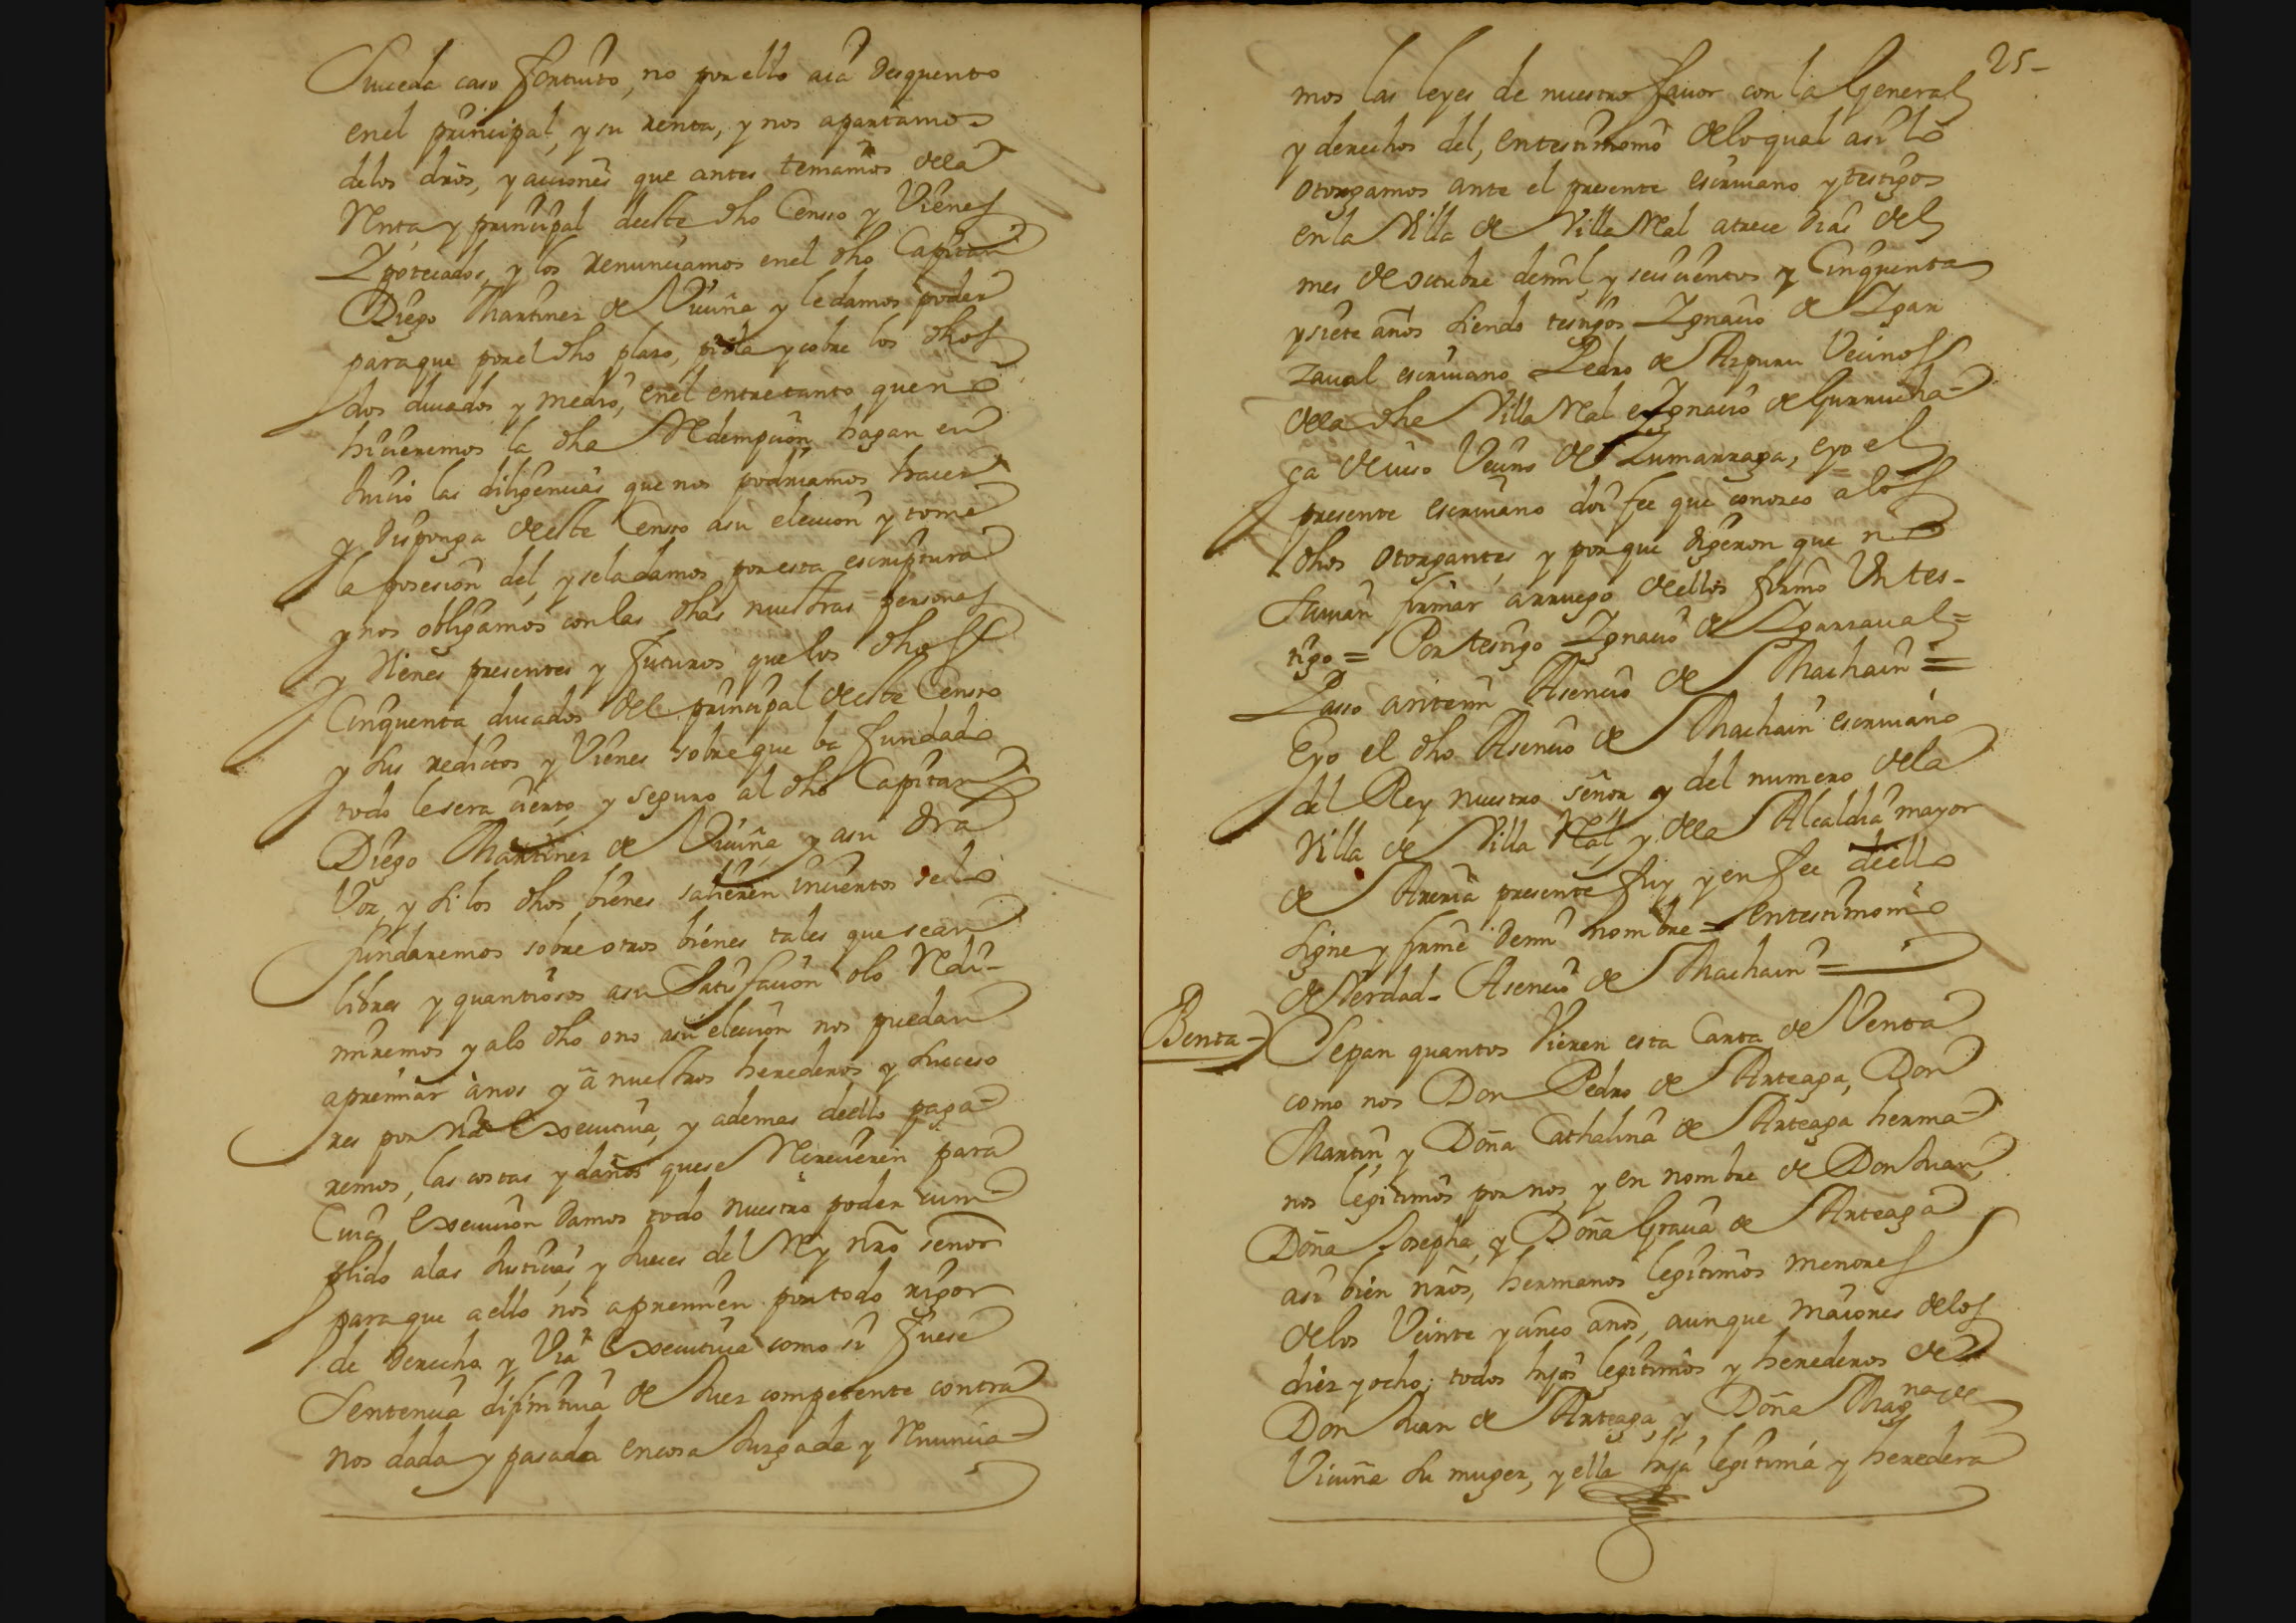 Suceda caso fortuito, no por ello aia desquento
en el principal, y su renta, y nos apartamos
de los dr̃os, y acciones que antes teniamos dela
Renta y principal deeste dho Censso y Vienes
Ypotecados, y los renunciamos en el dho Capitan
Diego Martinez de Vicuña y le damos poder
para que por el dho plazo, pida y cobre los dhos
dos ducados y medio, en el entretanto que no
hicieremos la dha Redempcion hagan en
Juicio las diligencias que nos podriamos hacer
y disponga deeste Censo asu eleccion y tome
la posesion del, y sela damos por esta escriptura
y nos obligamos con las dhas nuestras personas
y Vienes presentes y futuros que los dhos
Cinquenta ducados del principal deeste Censso
y sus reditos y Vienes sobre que ba fundado
todo le sera cierto, y seguro al dho Capitan
Diego Martinez de Vicuña y asu dra
Voz, y si los dhos bienes salieren inciertos selo
fundaremos sobre otros bienes tales que sean
libres y quantiosos asu Satisfacion olo Redi-
miremos y alo dho ono asu eleccion nos puedan
apremiar ànos y à nuestros herederos y succeso
res por via Executiva, y ademas deello paga-
remos, las costas y daños quese Recrecieren para
Cuia Execucion damos todo nuestro poder cum-
plido alas Justicias, y Jueces del Rey nr̃o señor
para que aello nos apremien por todo rigor
de derecho y Via Executiva como si fuese
Sentencia difinitiva de Juez competente contra
nos dada y pasada en cosa Juzgada y Renuncia-
25-
mos las leyes de nuestro favor con la General
y derechos del, en testimonio delo qual asi lo
otorgamos ante el presente escrivano y testigos
en la Villa de Villa Real a trece dias del
mes de octubre de mil y seiscientos y Cinquenta
y siete años siendo testigos Ygnacio de Ygar
zaval escrivano Pedro de Azpuru Vecinos
dela dha Villa Real e Ygnacio de Gurrucha-
ga Vecino de Zumarraga, e yo el
presente escrivano doi fee que conozco a los
dhos otorgantes, y porque digeron que no
Savian firmar aruego deellos firmo Un tes-
tigo = Por testigo Ygnacio de Ygarzaval =
Passo antemi Asencio de Machain =
E yo el dho Asencio de Machain escrivano
del Rey nuestro señor y del numero dela
Villa de Villa Real y dela Alcaldia mayor
de Areria presente fui, y en fee deello
signe y firmè de mi nombre = en testimonio
de Verdad - Asencio de Machain =
Benta - Sepan quantos Vieren esta Carta de Venta
como nos Don Pedro de Arteaga, Don
Martin, y Doña Cathalina de Arteaga herma-
nos legitimos por nos, y en nombre de Don Juan,
Doña Josepha, y Doña Gracia de Arteaga
asi bien nr̃os, hermanos legitimos menores
delos Veinte y cinco años, aunque maiores delos
diez y ocho; todos hijos legitimos y herederos de
Don Juan de Arteaga, y Doña Mag̃na de
Vicuña su muger, y ella hija legitima y heredera